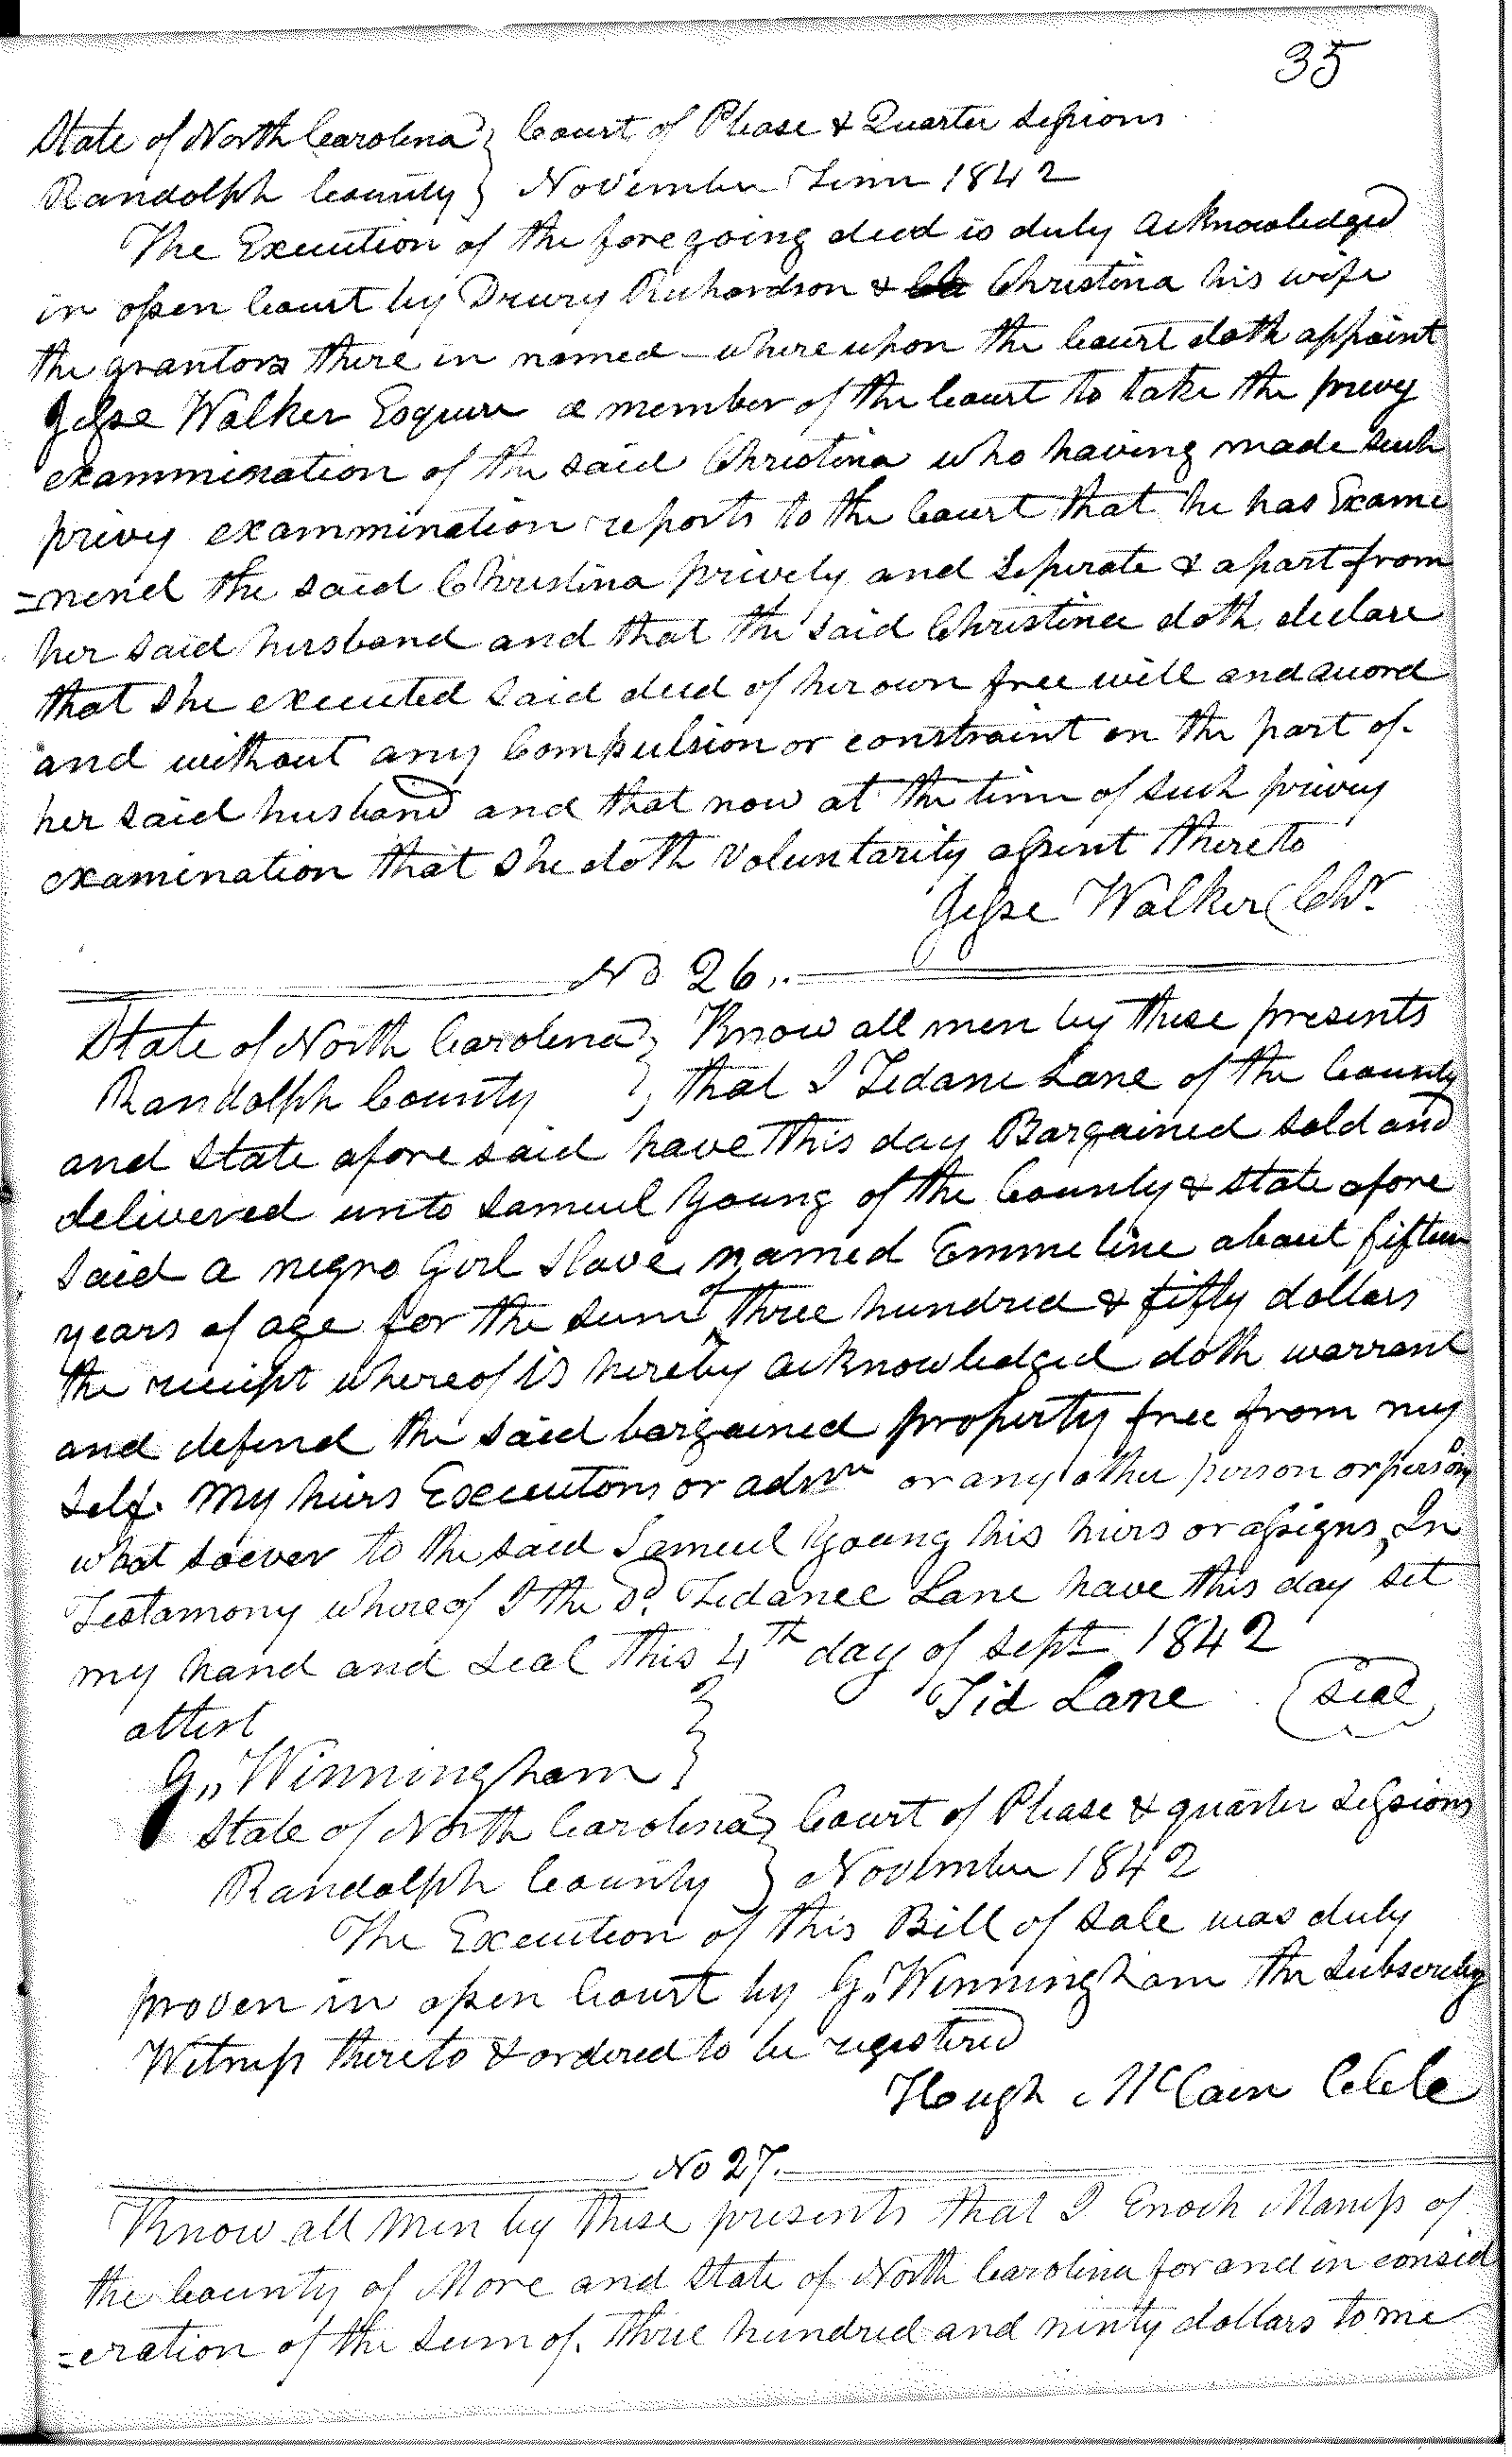 35
State of North Carolina } Court of Please & Quarter Sessions
Randolph County } November Term 1842
The Execution of the foregoing deed is duly acknowledged
in open Court by Drury Richardson & Christina his wife
the grantors there in named - where upon the Court doth appoint
Jesse Walker Esquire a member of the Court to take the privy
exammination of the said Christina who having made such
privy exammination reports to the Court that he has Exami
=nend the said Christina prively and seperate & apart from
her said husband and that the said Christina doth declare
that she executed said deed of her own free will and accord
and without any Compulsion or constraint on the part of
her said husband and that now at the time of such privy
examination that she doth voluntarity assent thereto
Jesse Walker Chr.
No 26..
State of North Carolina } Know all men by these presents
Randolph County } that I Tedane Lane of the County
and State afore said have this day Bargained sold and
delivered unto Samuel Young of the County & State afore
said a negro Girl Slave named Emmeline about fifteen
years of age for the sum of three hundred & fifty dollars
the receipt whereof is hereby acknowledged doth warrant
and defend the said bargained property free from my
self. My heirs Executors or admrs or any other person or persons
what soever to the said Samuel Young his heirs or assigns, In
Testamony whereof I the sd. Tedanee Lane have this day set
my hand and seal this 4th day of Sept 1842
attest } Tid Lane (seal)
G,, Winningham }
State of North Carolina } Court of Please & quarter Sessions
Randolph County } November 1842
The Execution of this Bill of Sale was duly
proven in open Court by G. Winningham the Subscribing
Witness thereto & ordered to be registered
Hough McCain Clk
No 27.
Know all men by these presents that I Enoch Maness of
the County of More and State of North Carolina for and in consid
=eration of the sum of. three hundred and ninty dollars to me